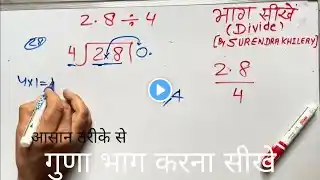 2.8 ÷ 4
भाग सीखें
(Divide)
[By SURENDRA KHILERY]
4) 2×8 ( 0.
2.8
4
4×1=4
आसान तरीके से
गुणा भाग करना सीखें